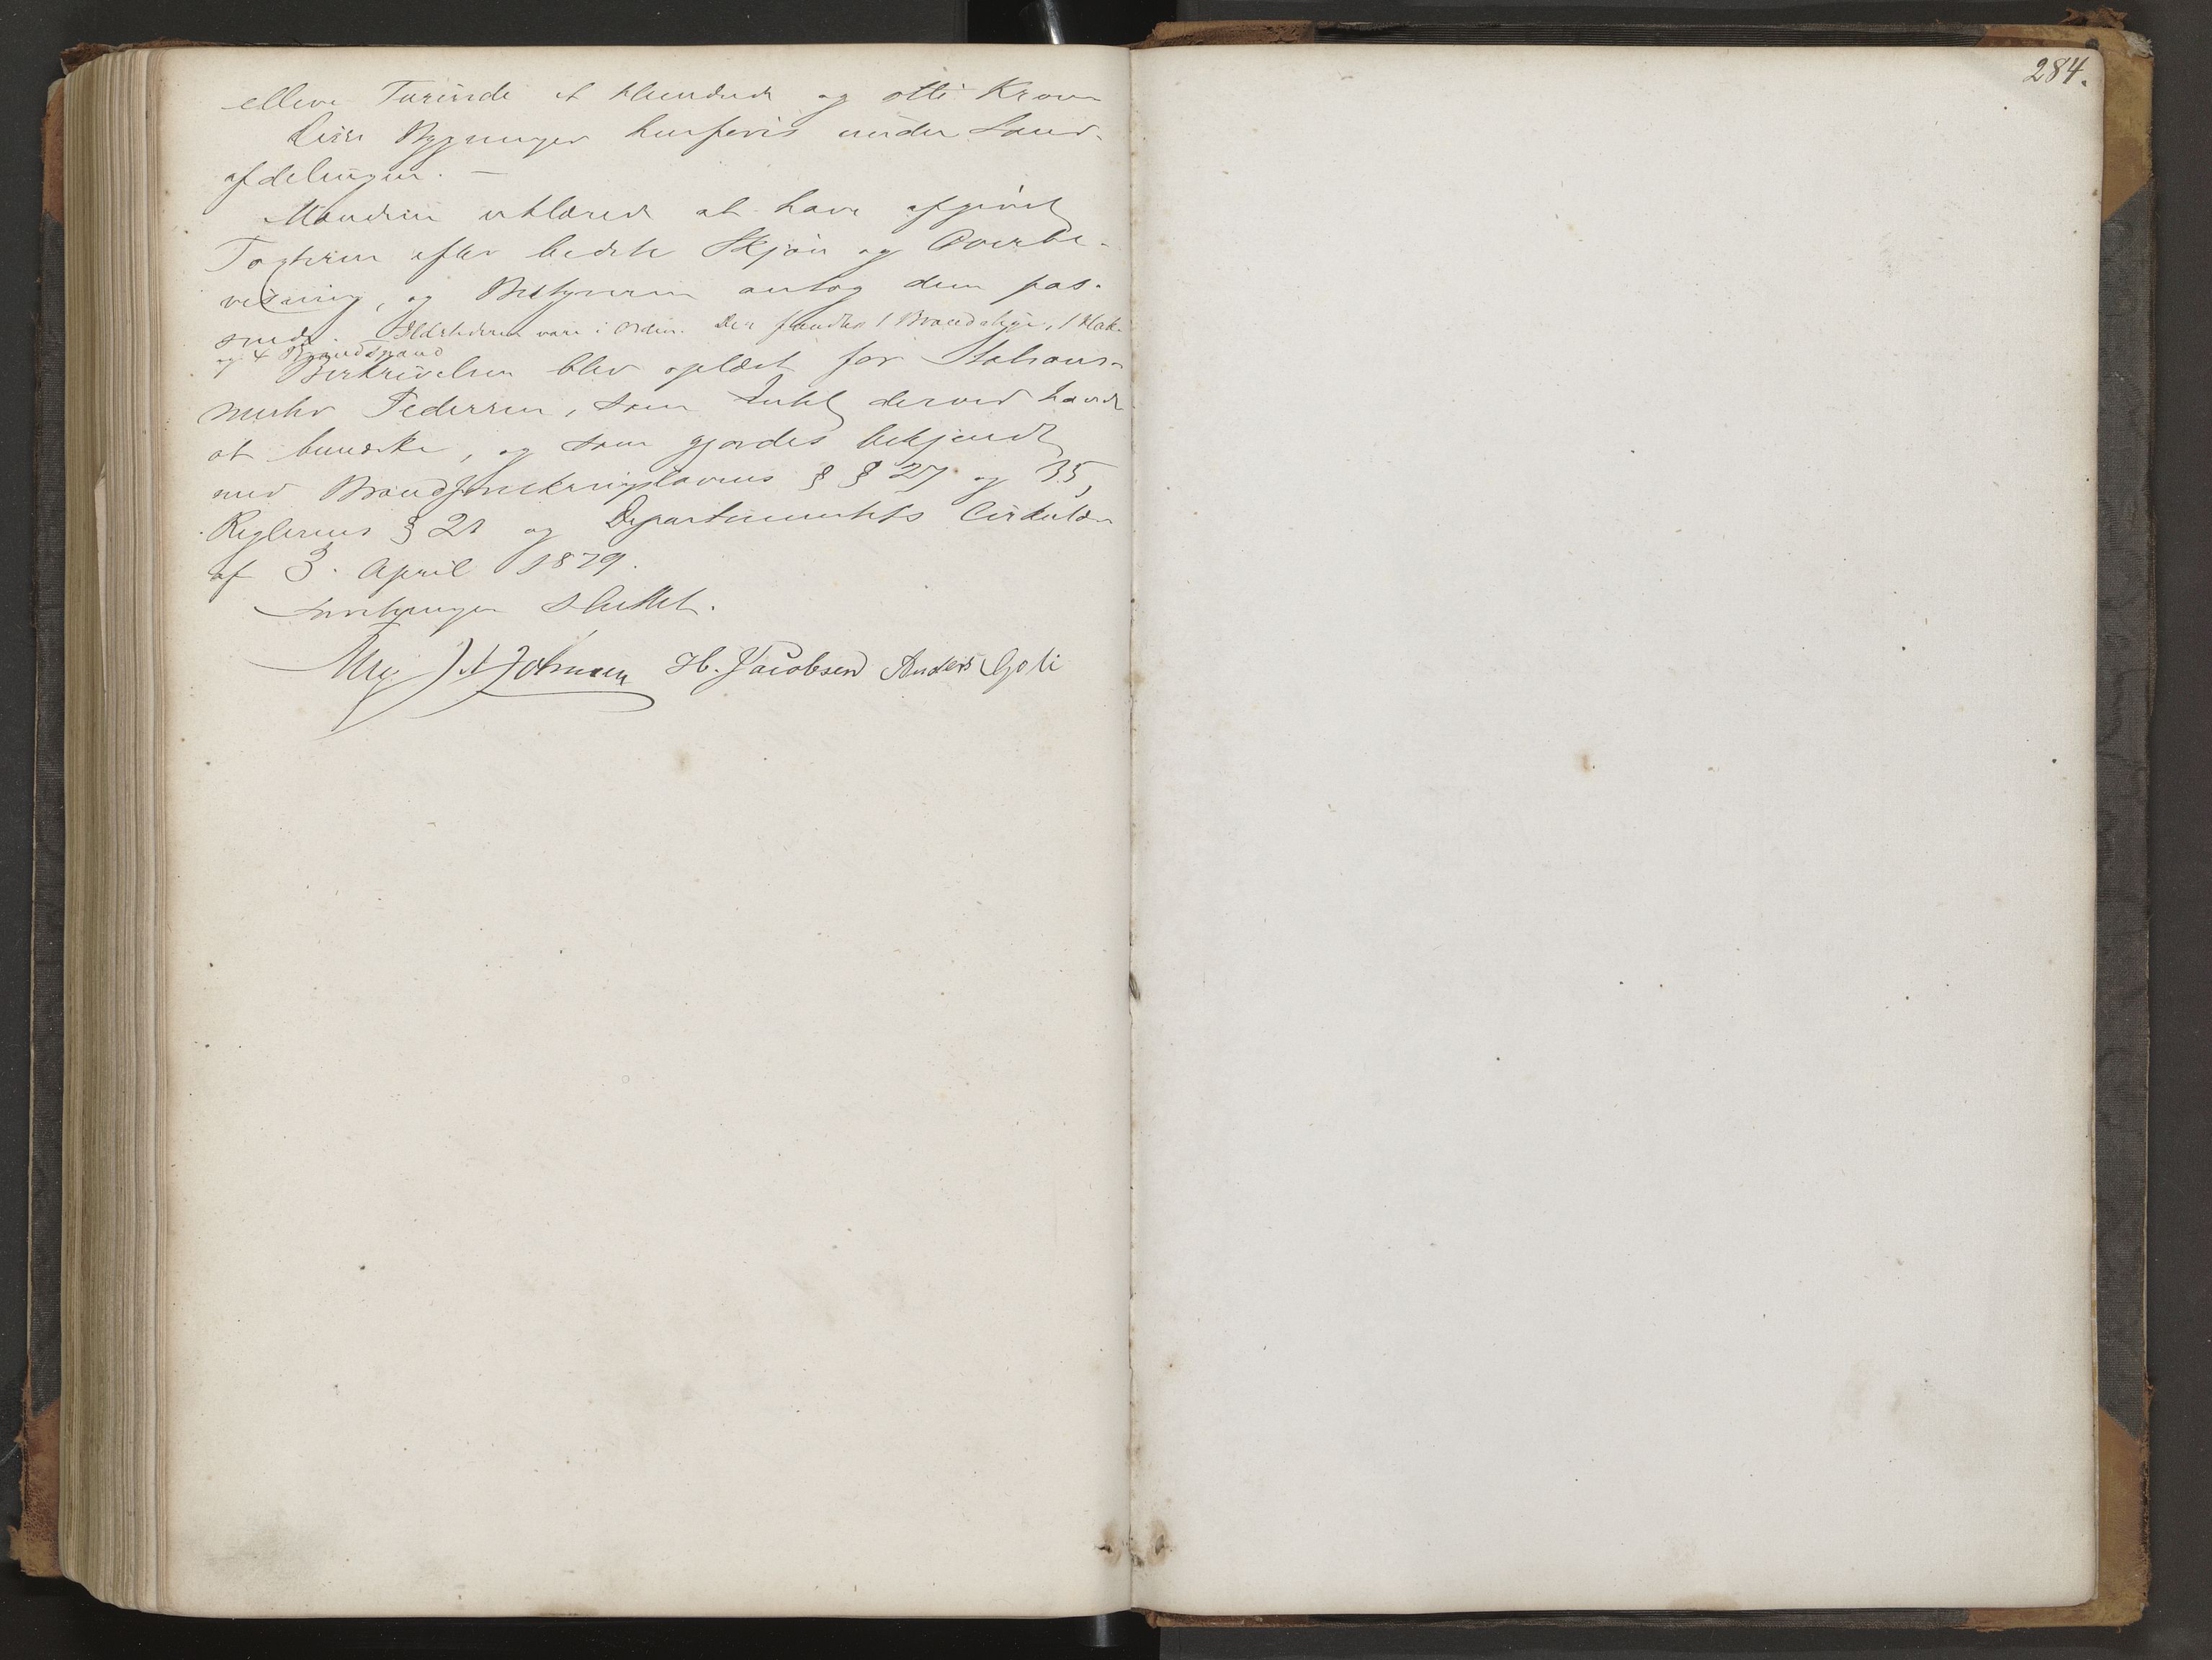 284.
elleve Tusinde et Hundrede og otti Kroner
Disse Bygninger henføris under Land-
afdelingen. —
Mændene erklærede at have afgivet
Taxterne efter bedste Skjøn og Overbe-
visning, og Bestyreren antog dem pas-
sende. Ildstederne vare i Orden. Der fandtes 1 Brandstige, 1 Hake
og 4 Brandspand
Beskrivelsen blev oplæst for Stations-
mester Pedersen, som Intet derved havde
at bemærke, og som gjordes bekjendt
med Brandforsikringslovens § § 27 og 35,
Reglernes § 21 og Departementets Cirkulær
af 3. April 1879.
Forretningen sluttet.
H. Jacobsen Anders Goli